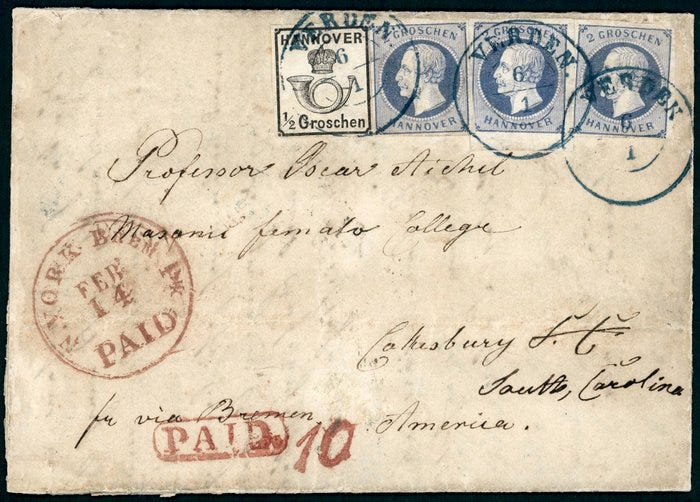 HANNOVER
1/2 Groschen
2 GROSCHEN
HANNOVER
2 GROSCHEN
HANNOVER
2 GROSCHEN
HANNOVER
VERDEN.
6
1
VERDEN.
6
1
VERDEN
6
1
Professor Oscar Aichel
Masonic female College
N. YORK BREM. PK.
FEB
14
PAID
Cokesbury S. C.
South, Carolina
fr via Bremen.
America.
PAID
10